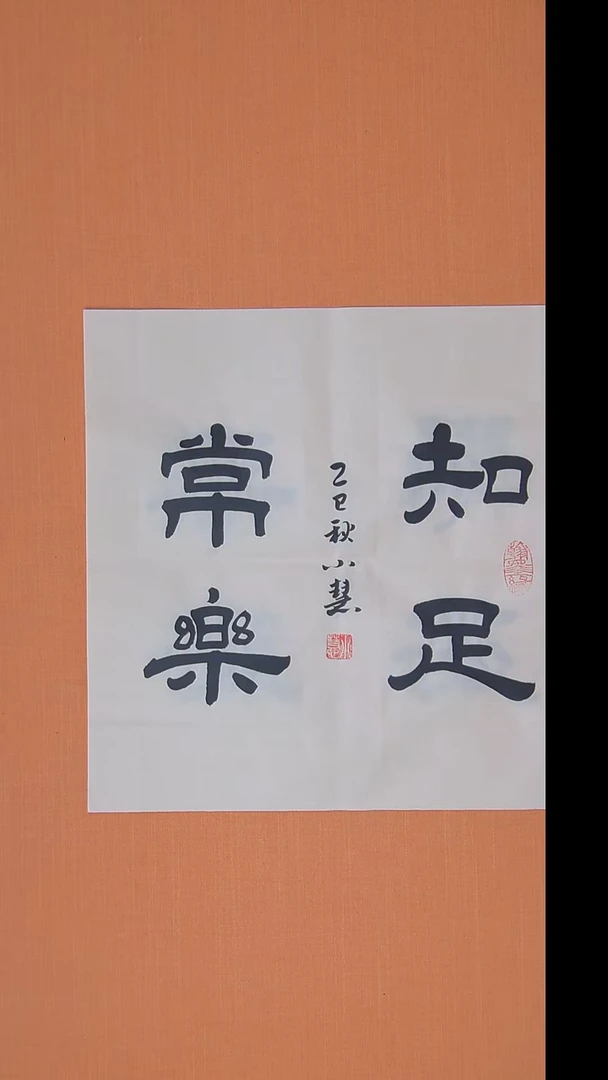 知足
常樂
乙巳秋小慧
小慧